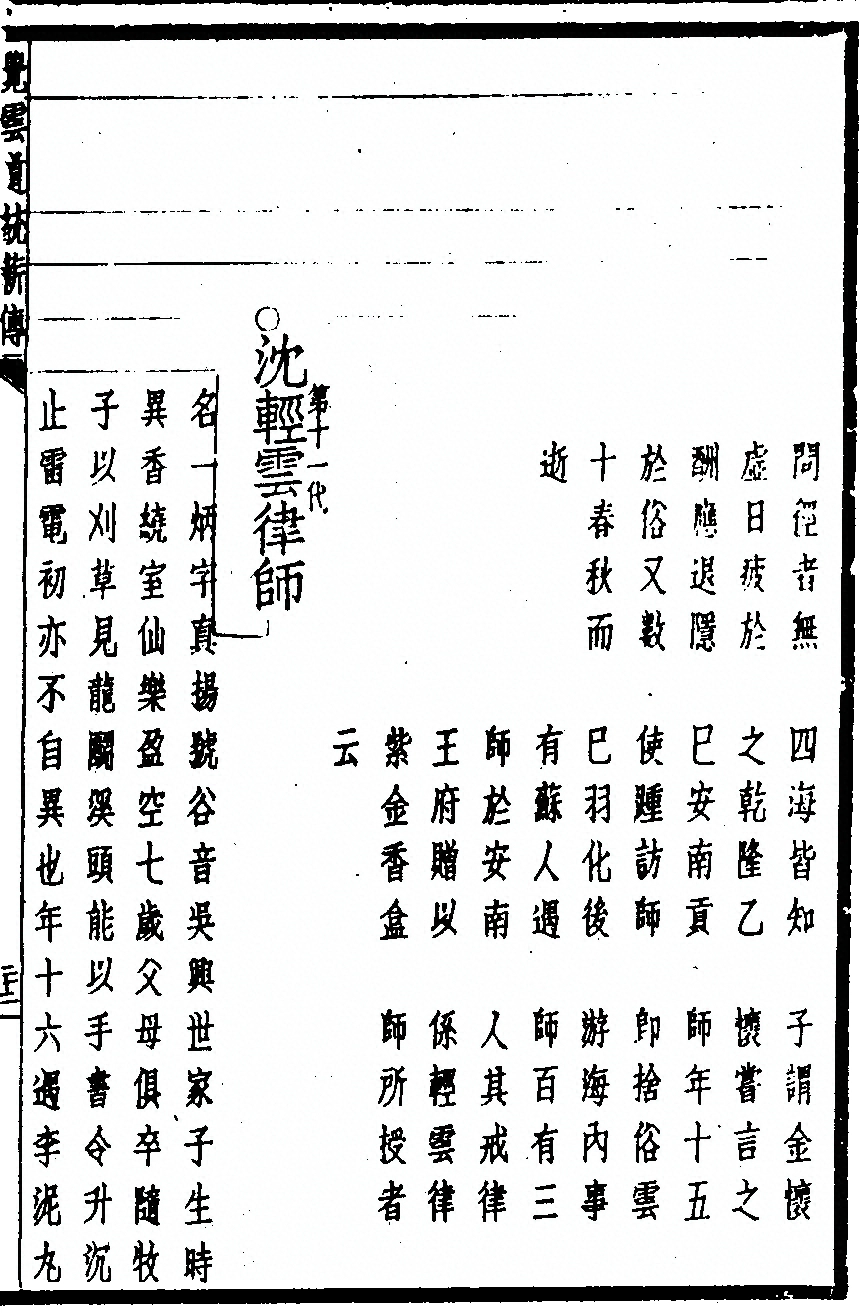 問徑者無
虛日疲於
酬應退隱
於俗又數
十春秋而
逝
四海皆知
之乾隆乙
巳安南貢
使踵訪師
巳羽化後
有蘇人遇
師於安南
王府贈以
紫金香盒
云
子謂金懷
懷嘗言之
師年十五
即捨俗雲
游海內事
師百有三
人其戒律
係輕雲律
師所授者
第十一代
○沈輕雲律師
名一炳字真揚號谷音吳興世家子生時
異香繞室仙樂盈空七歲父母俱卒隨牧
子以刈草見龍鬭溪頭能以手書令升沉
止雷電初亦不自異也年十六遇李泥丸
覺雲道統薪傳